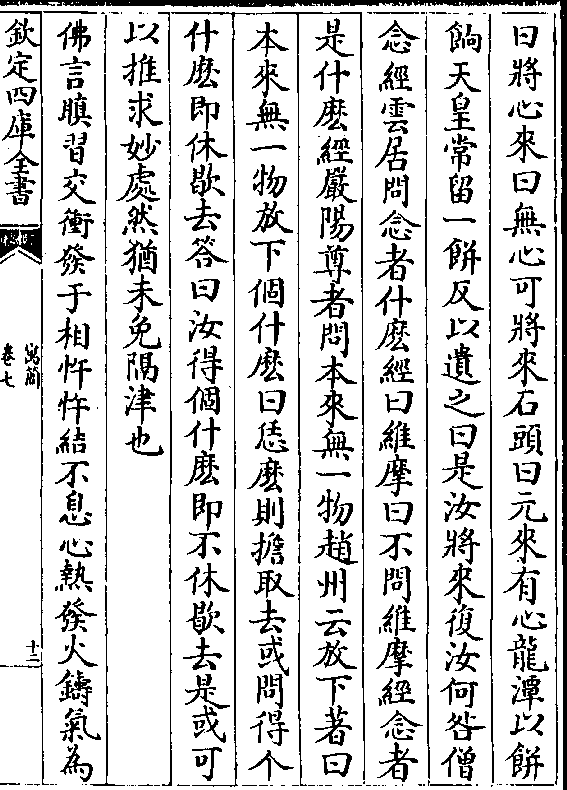 曰將心來曰無心可將來石頭曰元來有心龍潭以餅
餉天皇常留一餅反以遺之曰是汝將來復汝何咎僧
念經雲居問念者什麽經曰維摩曰不問維摩經念者
是什麽經嚴陽尊者問本來無一物趙州云放下著曰
本來無一物放下個什麽曰恁麽則擔取去或問得个
什麽即休歇去答曰汝得個什麽即不休歇去是或可
以推求妙處然猶未免隔津也
佛言瞋習交衝發于相忤忤結不息心熱發火鑄氣為
欽定四庫全書
寓簡
卷七
十二